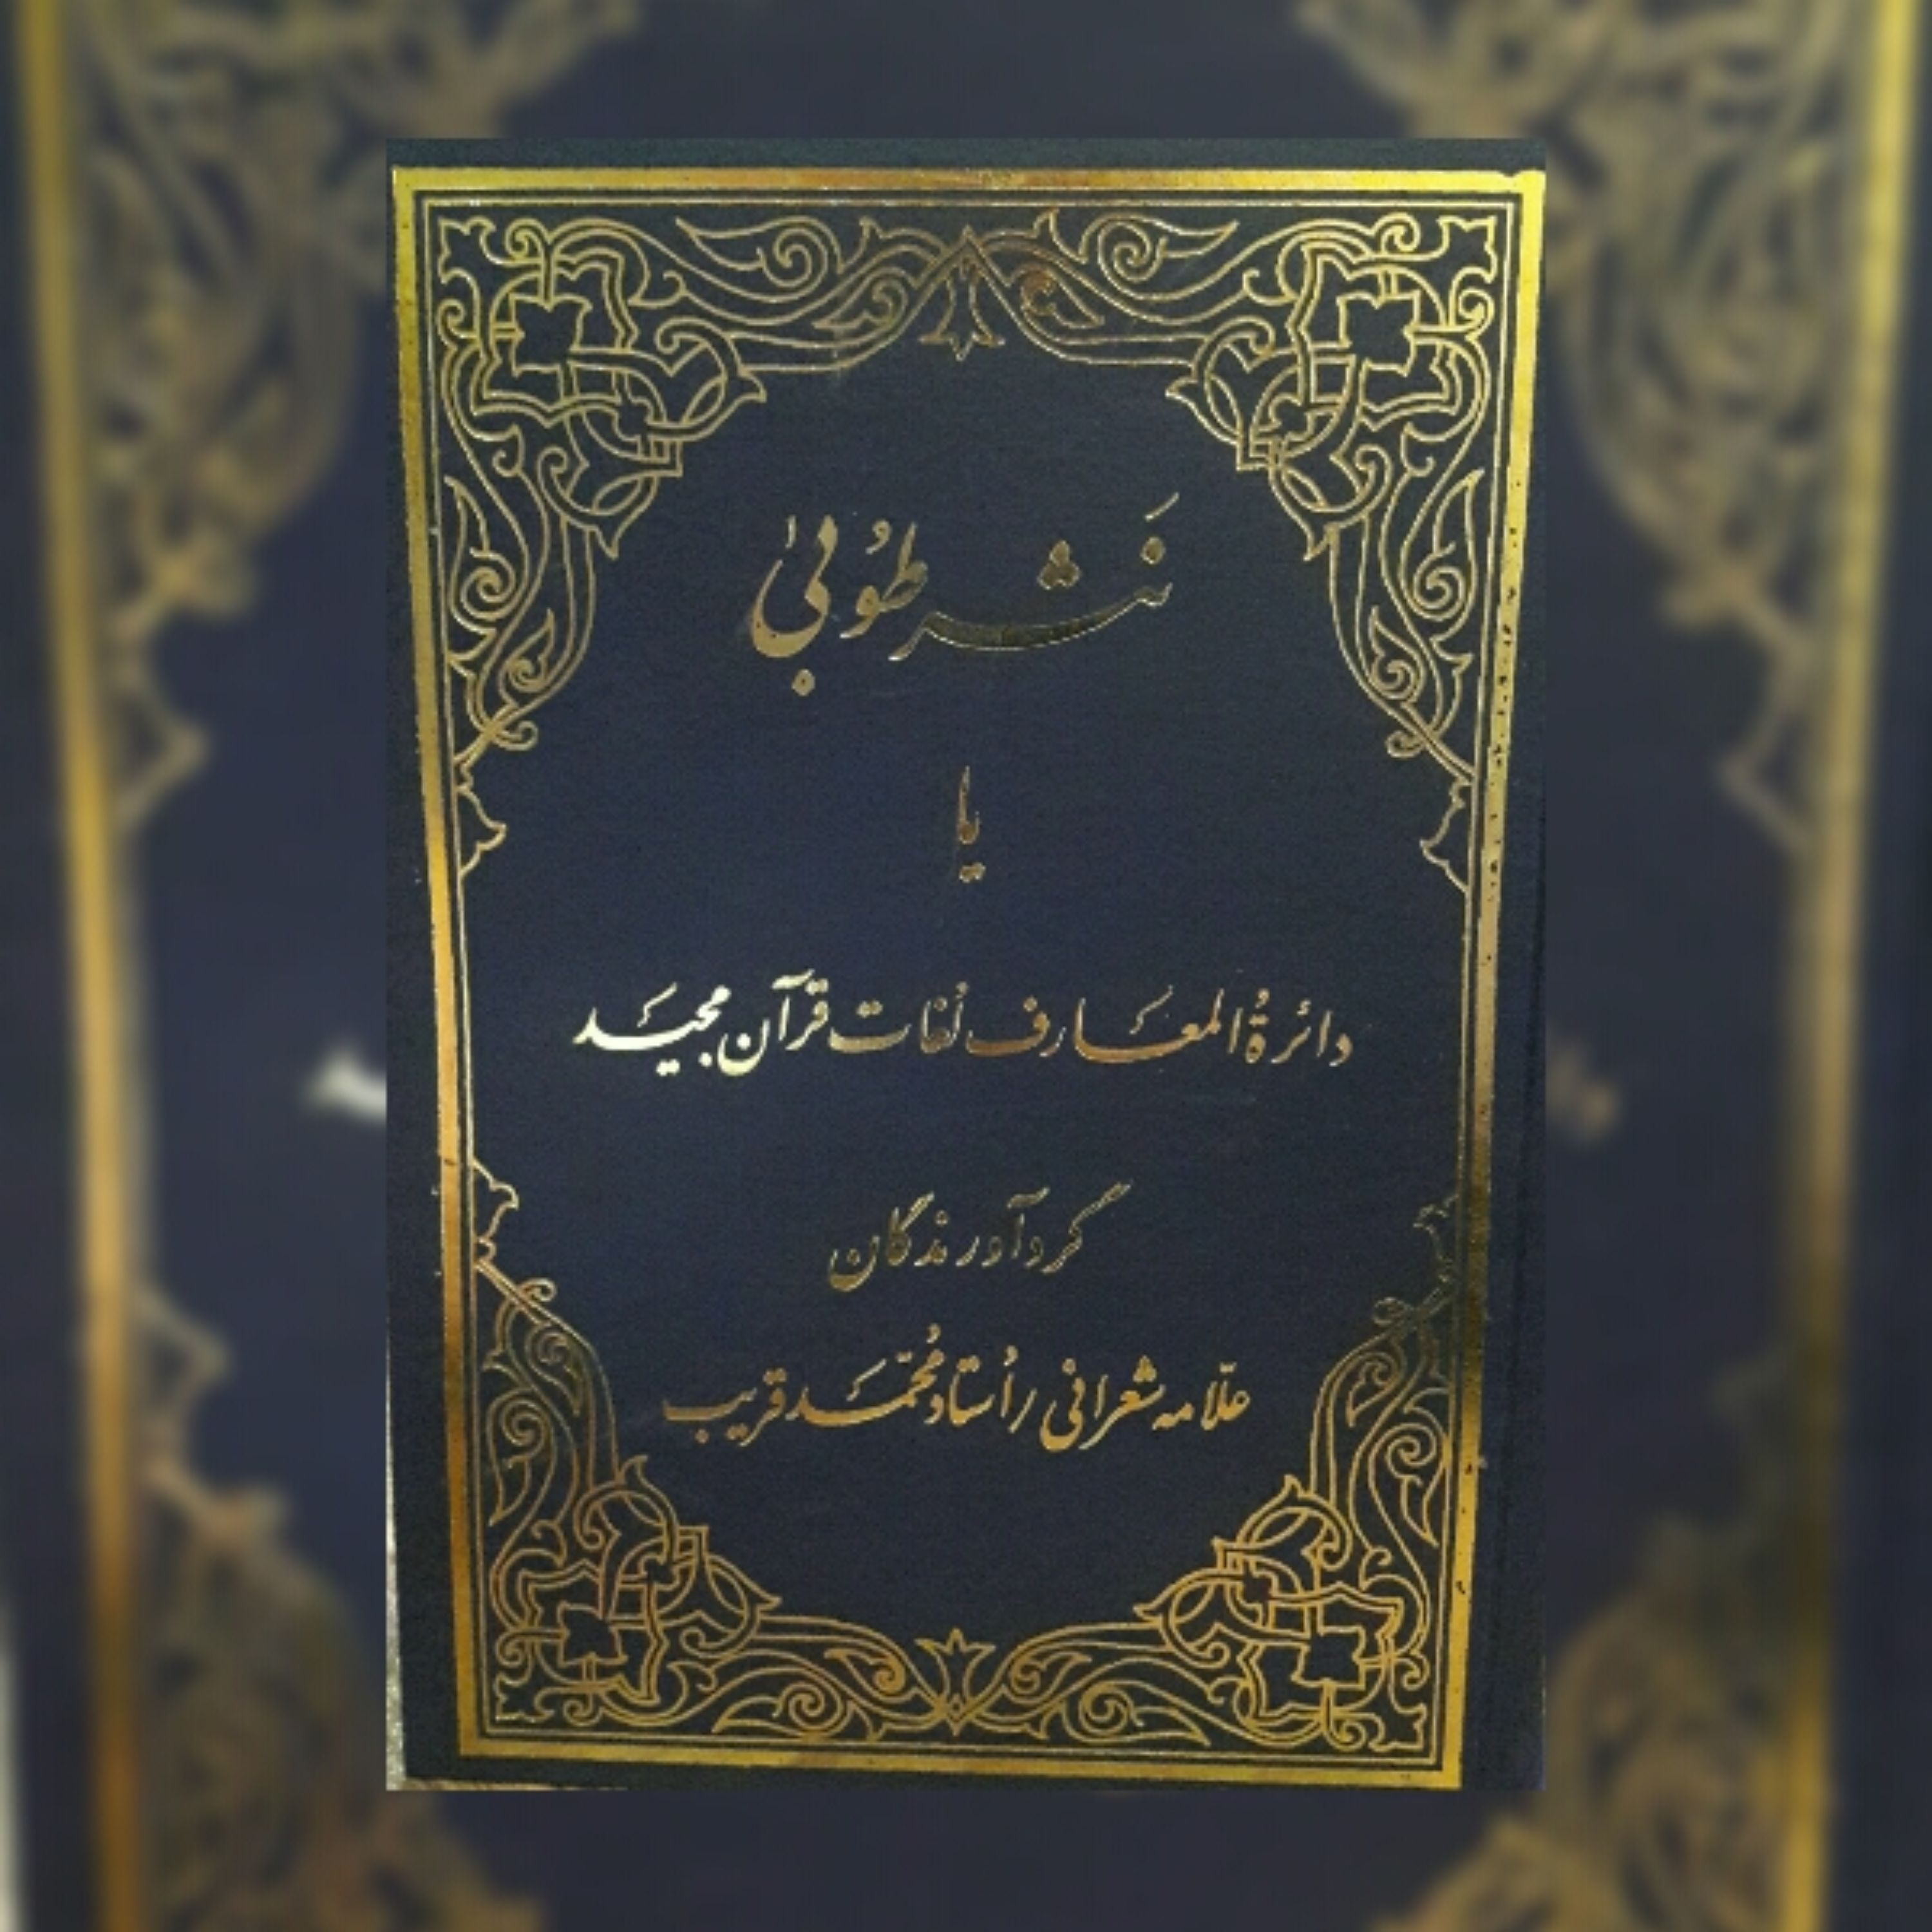 نَثر طُوبیٰ
یا
دائرةُ المعارف لُغات قرآن مجید
گردآورندگان
علّامه شعرانی رأستاد محُمّد قریب